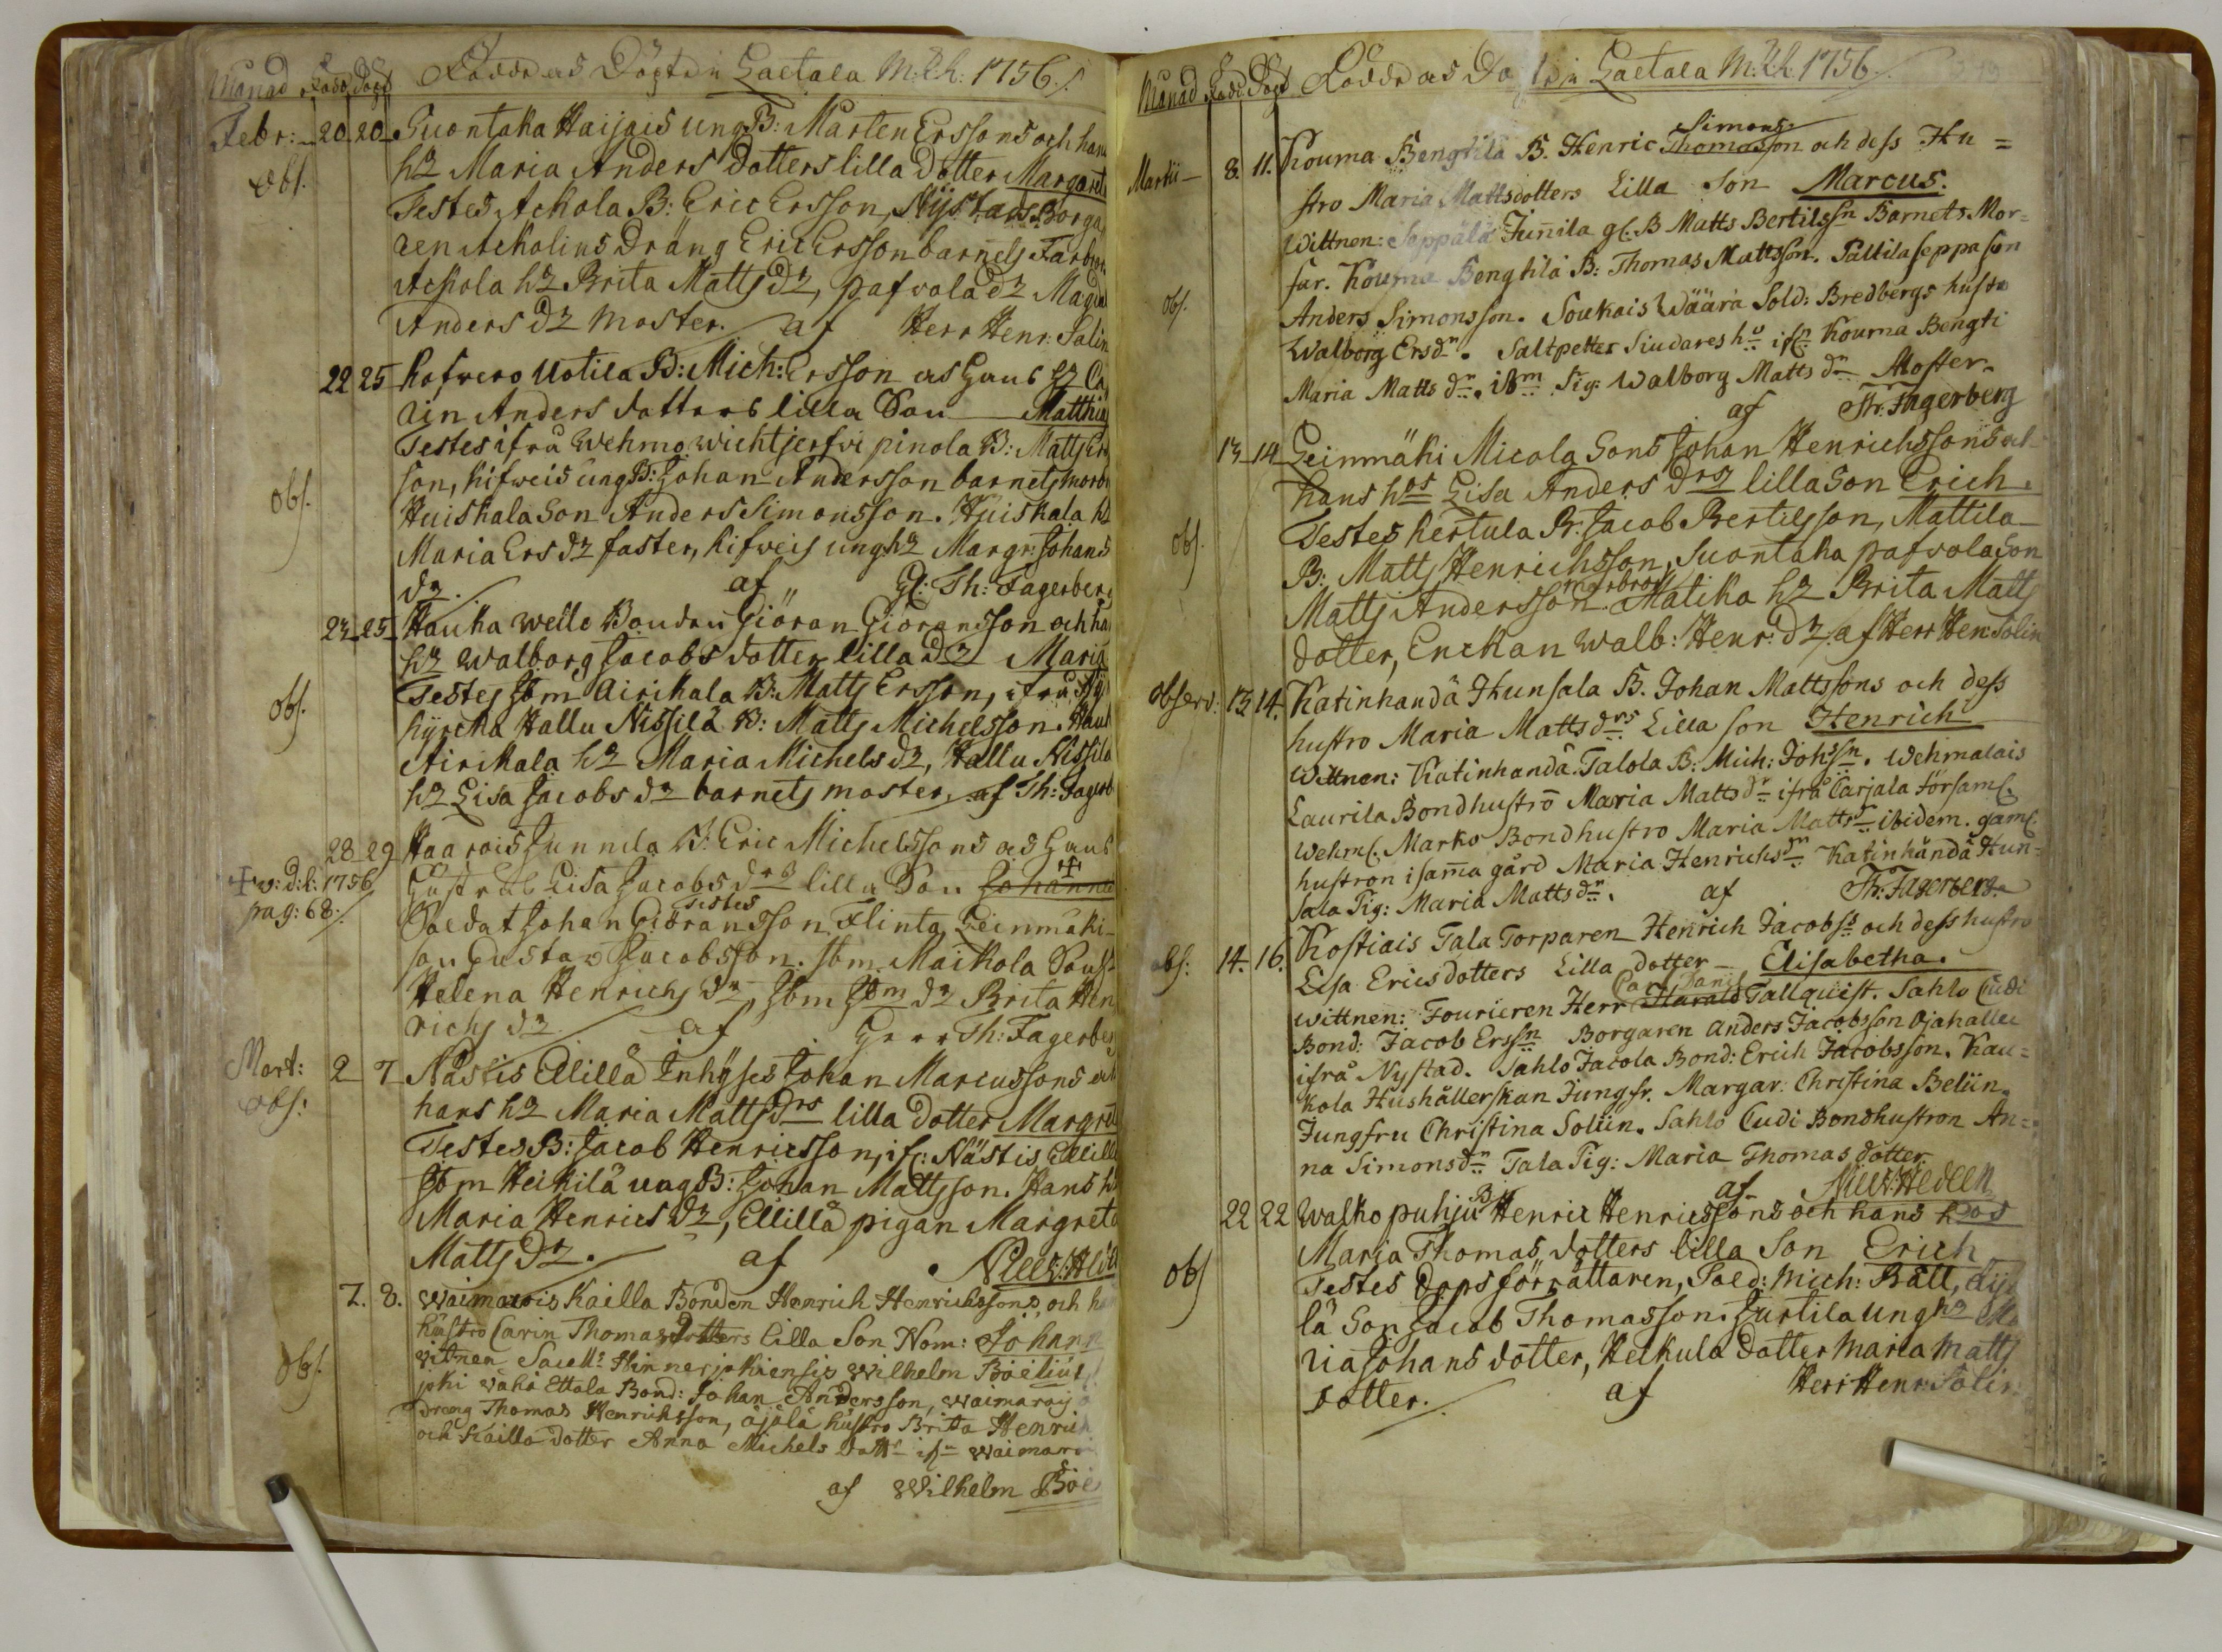 Månad Född Döpt Födde och Döpte in Laetala M:K: 1756./.
Febr: 20 20 Suontaka Haijais ung B: Mårten Erssons och hans
obs. h2 Maria Anders Dotters lilla Dotter Margareta
Testes, Ackola B: Eric Ersson, Nijstads Borga
ren Ackolins Dräng Eric Ersson barnets Farbror
Ackola h2 Brita Matts d2, pafvola d2 Magdal
Anders d2 Moster. af Herr Henr: Salin
22 25 Kofvero Uotila B: Mich: Ersson as Hans h2 Ca
rin Anders dotters lilla Son Matthias
Testes ifrå Wehmo Wichtjerfvi pinola B: Matts Ers
obs. son, Kifweis ung B: Johan Andersson barnets morbr
Huiskala Son Anders Simonsson. Huiskala h2
Maria Ers d2 faster, Kifveis ung h2 Margr: Johans
d2. af Gl: Th: Fagerberg
24 25 Hauka weile Bonden Giöran Giöransson och ha
h2 Walborg Jacobs dotter lilla d2 Maria
obs. Testes Jbm Airikala B: Matts Ersson, ifrå Ny
kyrcka Hallu Nissilä B: Matts Michelsson. Hauk
Airikala h2 Maria Michels d2, Hallu Nissilä
h2 Lisa Jacobs d2 barnets moster, af Th: Fagerb
28 29 Haarois Junnila B: Eric Michelssons as Hans
+ v: d: l: 1756 Hustrus Lisa Jacobs drs lilla Son Johannes +
pag: 68./. Testes
Soldat Johan Giöransson Flinta, Leinmäki
son Gustav Jacobsson. Jbm Maikola
Helena Henrichs d2, Jbm Jbm d2 Brita Hen
richs d2 af Herr Th: Fagerberg
Mart: 2 7 Nästis Ellilä Inhyses Johan Marcussons och
obs: hans h2 Maria Matts drs lilla Dotter Margreta
Testes B: Jacob Henricsson, ifr: Nästis Ellilä
Jbm Heikilä ung B: Johan Mattsson. Hans h2
Maria Henrics d2, Ellilä pigan Margreta
Matts d2. af Nills: Hedeen
7. 8. Waimarois Kailla Bonden Henrich Henrichssons, och hans
hustro Carin Thomas Dotters lilla Son Nom: Johann
obs. vitnen Sacell: Hinnerjokiensis Wilhelm Boelius
joki Vähä Ettala Bond: Johan Andersson, Waimaroij
dreng Thomas Henrichsson, äjälä hustro Brita Henrich
och Kailla dotter Anna Michels Dotter ifr Waimaro
af Wilhelm Böe
Månad Född Döpt Födde och Döpte in Laetala M:K: 1756./.
Simons
Martii 8. 11. Kouma Bengtilä B. Henric Thomasson och dess Hu=
stro Maria Mattsdotters Lilla Son Marcus.
Wittnen: Seppälä Junnila gl. B Matts Bertilssn Barnets Mor=
far. Kouma Bengtilä B: Thomas Mattsson. Pälliläseppa son
obs. Anders Simonsson. Soukais Wäärä Sold: Bredbergs hustro
Walborg Ersdr. Saltpetter Siudares hu ifr Kouma Bengti
Maria Matts dr. ibm Pig: Walborg Matts dr Moster.
af Th: Fagerberg
13 14 Leinmäki Micola Sons Johan Henrichssons och
hans hos Lisa Anders drs lilla Son Erich.
obs. Testes Kertula B: Jacob Bertilsson, Mattila
B: Matts Henrichsson, Suontaka pafvola Son
morbror
Matts Andersson. Matika h2 Brita Matts
dotter, Enckan Walb: Henr: d2. af Herr Hen: Solin
observ: 13 14. Katinhändä Hunsala B. Johan Mattssons och dess
hustro Maria Matts drs Lilla Son Henrich
Wittnen: Katinhändä Talola B: Mich: Johssn. Wehmalais
Laurila Bondhustro Maria Matts dr ifrå Carjala Församl.
Wehml. Marko Bondhustro Maria Matts dr ibidem. gaml.
hustron i sama gård Maria Henrichs dr Katinhändä Hun=
sala Pig: Maria Matts dr. af Th: Fagerberg
obs: 14. 16. Kostiais Tala Torparen Henrich Jacobss och dess hustro
Lisa Ericsdotters Lilla dotter – Elisabetha.
Carl Daniel
Wittnen: Fourieren Herr Harald Tallquist. Sahlo Cudi
Bond: Jacob Erssn Borgaren Anders Jacobsson Ojahaller
ifrå Nystad. Sahlo Jacola Bond: Erich Jacobsson. Kau=
kola Hushållerskan Jungfr. Margar: Christina Beliin.
Jungfru Christina Soliin. Sahlo Cudi Bondhustron An=
na Simons dr Tala Pig: Maria Thomas dotter.
af Nills: Hedeen
22 22 Walko puhju B: Henric Henricssons och hans hos
Maria Thomas dotters lilla Son Erich
obs Testes Dopsförrättaren, Sold: Mich: Båll,
lä Son Jacob Thomasson. Jurtila ung h2 Ma
ria Johans dotter, Heikula dotter Maria Matts
dotter. af Herr Henr: Solin